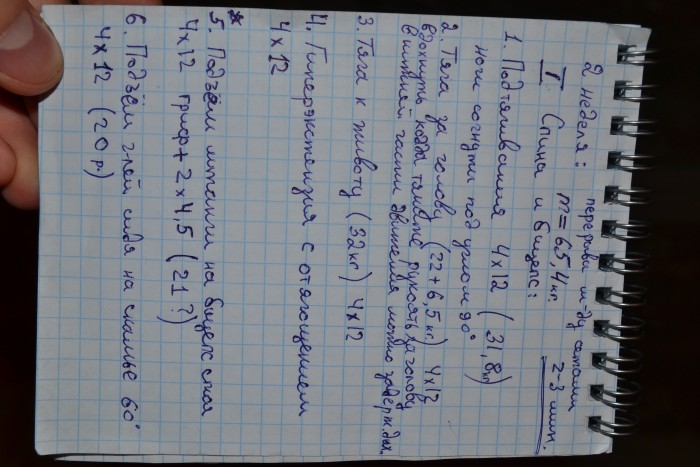 2 неделя: перерывы м-ду сетами
m=65,4кг. 2-3 мин.
I Спина и бицепс:
1. Подтягивания 4х12 (31,8кг)
ноги согнуты под углом 90°
2. Тяга за голову (22+6,5кг) 4х12
вдохнуть, когда тяните рукоять за голову
в нижней части движения можно задерж. дых.
3. Тяга к животу (32кг) 4х12
4. Гиперэкстензия с отягощением
4х12
5. Подъём штанги на бицепс стоя
4х12 гриф+2х4,5 (21?)
6. Подъём г-лей сидя на скамье 60°
4х12 (20р)